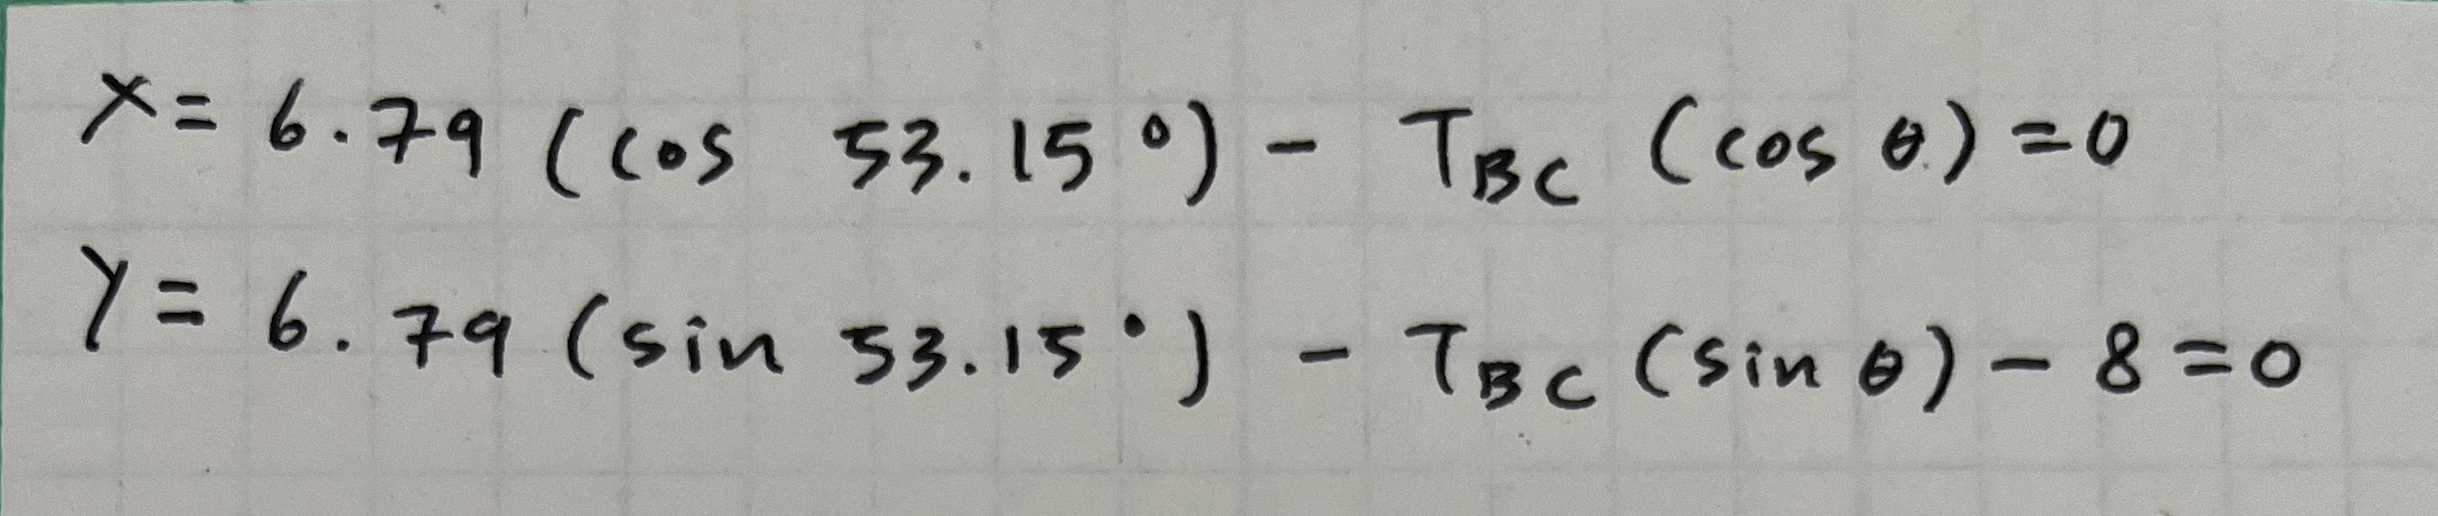 X = 6.79 (cos 53.15°) - T_BC (cos θ) = 0
Y = 6.79 (sin 53.15°) - T_BC (sin θ) - 8 = 0